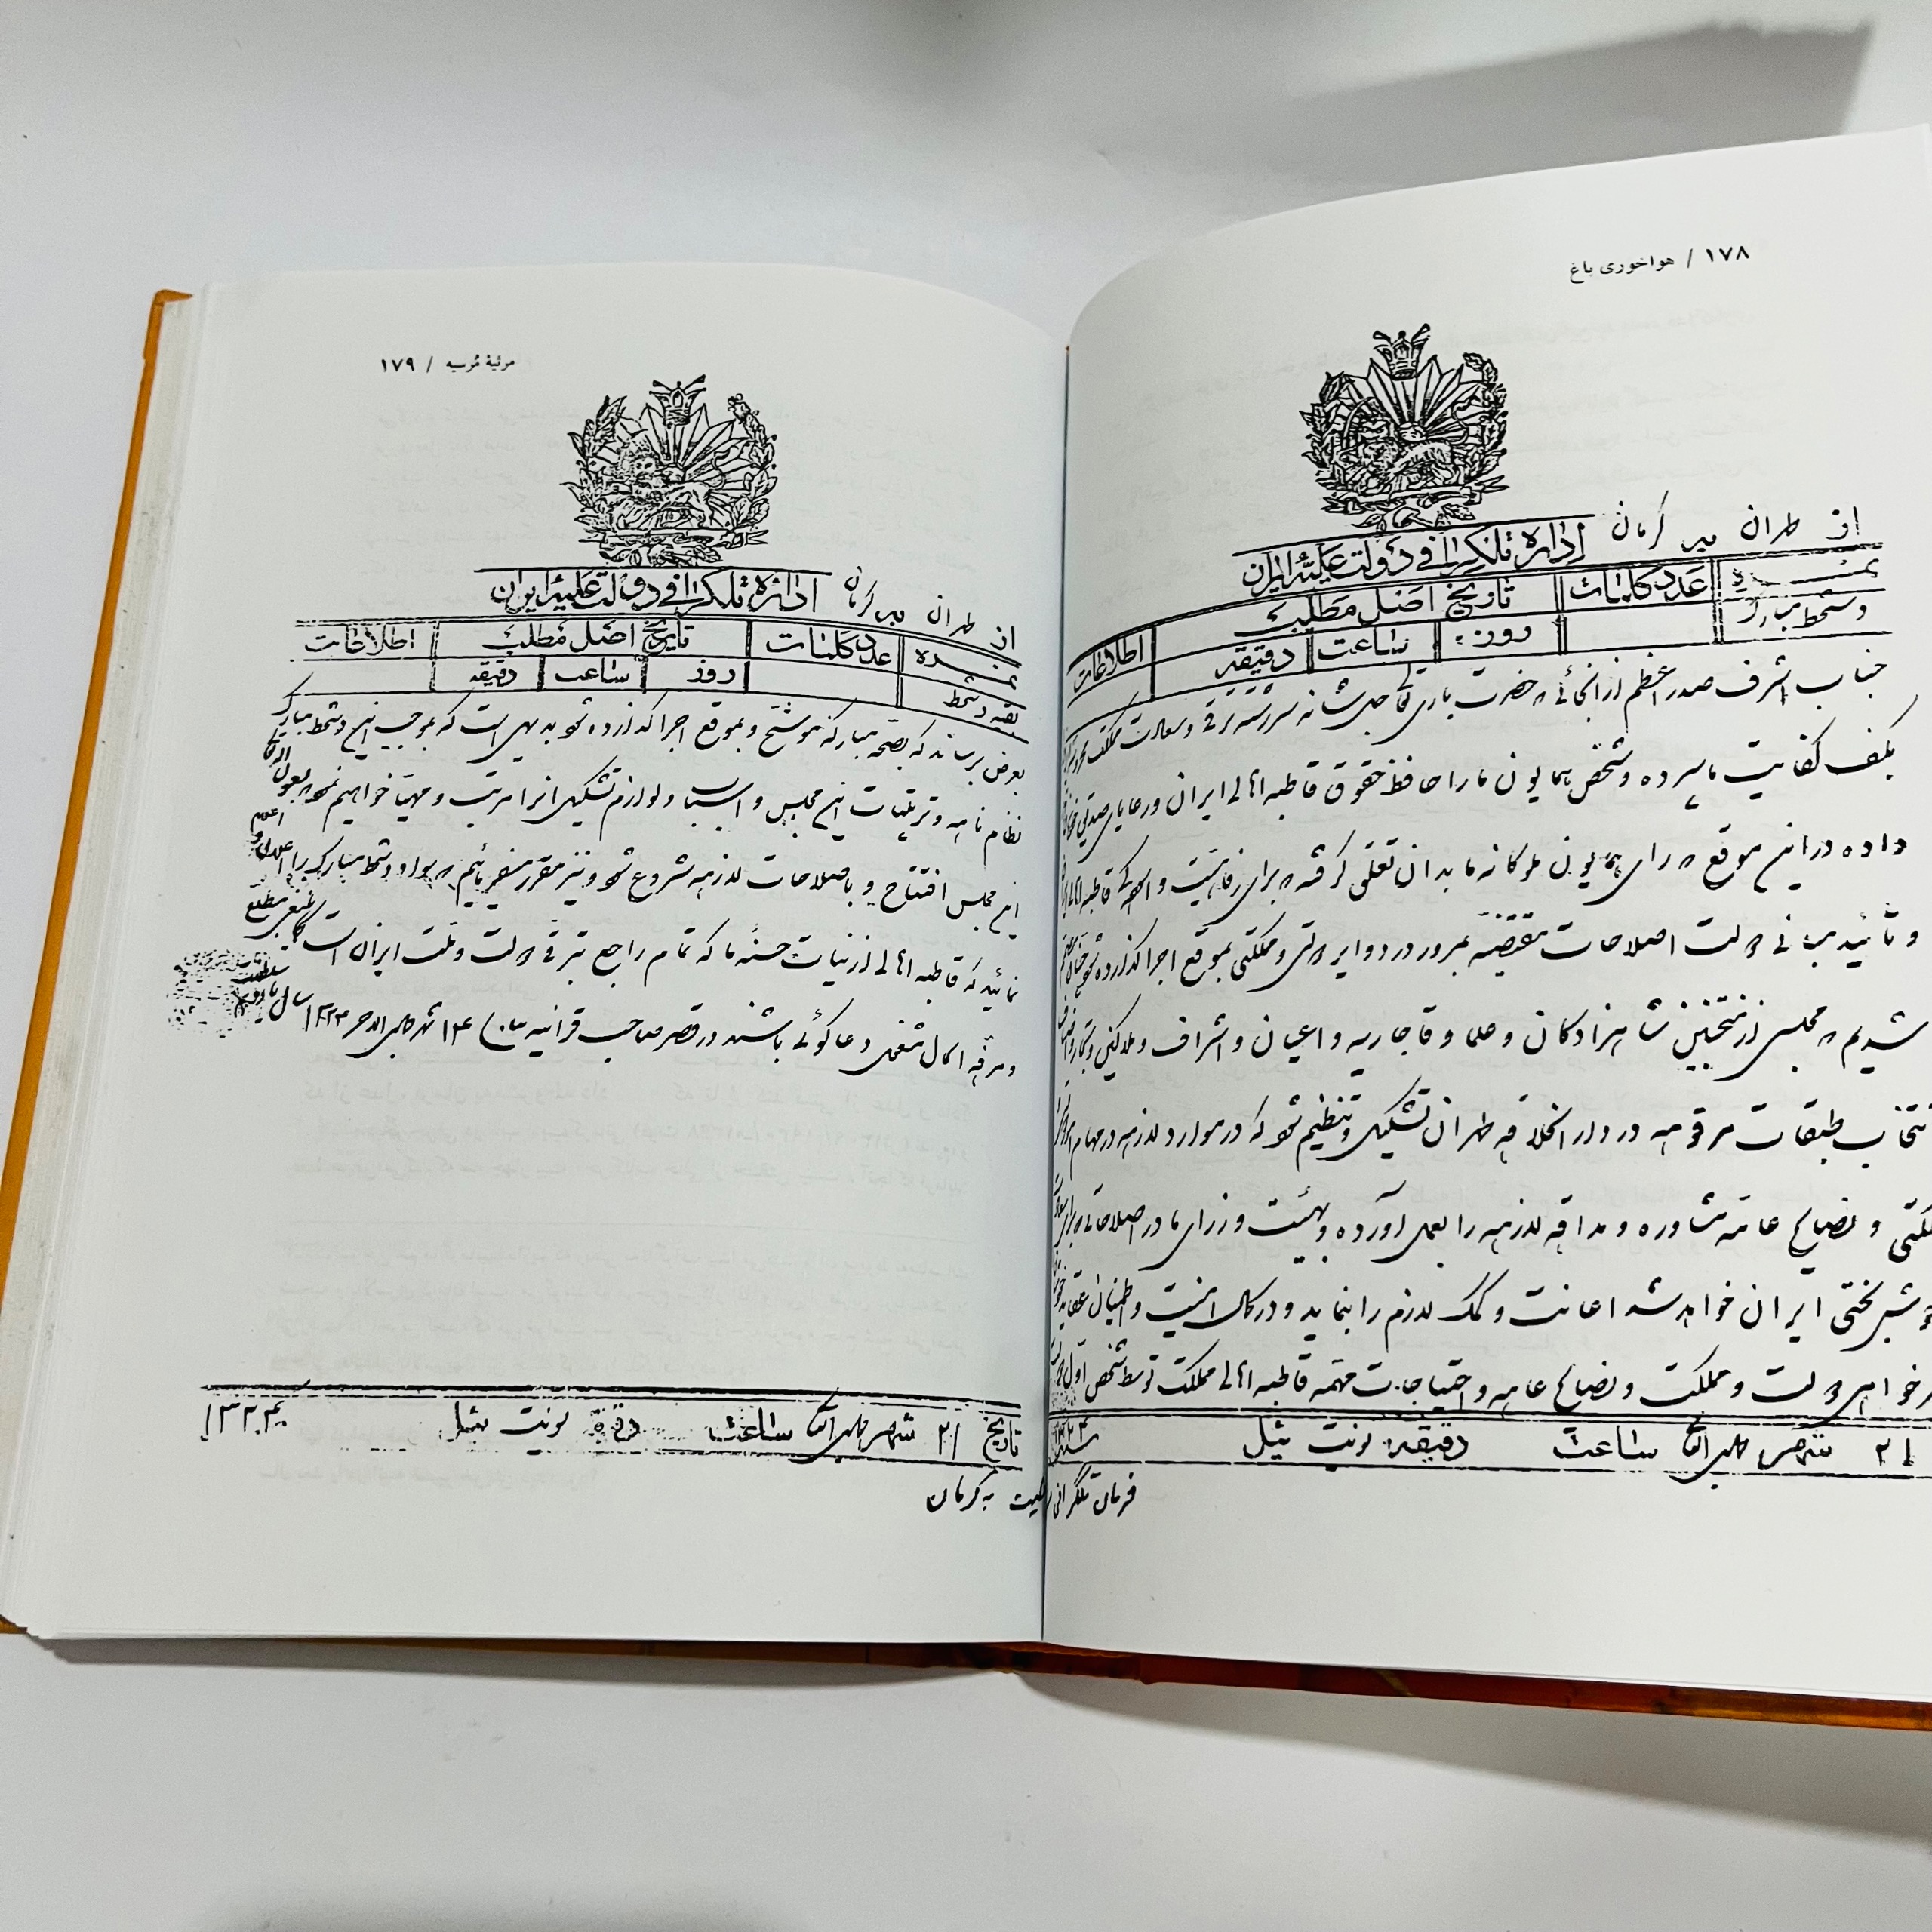 ۱۷۸ / هواخوری باغ
از طهران به کرمان
اداره تلگرافی دولت علیه ایران
نمره عدد کلمات تاریخ اصل مطلب اطلاعات
دستخط مبارک روز ساعت دقیقه
جناب اشرف صدراعظم از آنجائی که حضرت باری تعالی جل شانه سررشته ترقی و سعادت مملکت محروسه ایران
بکف کفایت ما سپرده و شخص همایون ما را حافظ حقوق قاطبه اهالی ایران و رعایای صدیق خود قرار
داده در این موقع که رای همایون ملوکانه ما بدان تعلق گرفته که برای رفاهیت و آسودگی قاطبه اهالی ایران
و تأیید مبانی دولت اصلاحات مقتضیه بمرور در دوایر دولتی و مملکتی بموقع اجرا گذارده شود چنان مصمم
شدیم که مجلسی از منتخبین شاهزادگان و علما و قاجاریه و اعیان و اشراف و ملاکین و تجار و اصناف
انتخاب طبقات مرقومه در دارالخلافه طهران تشکیل و تنظیم شود که در موارد لازمه در مهام امور
مملکتی و مصالح عامه مشاوره و مداقه لازمه را بعمل آورده و بهیئت وزرای ما در اصلاحاتی که برای سعادت
خوشبختی ایران خواهد شد اعانت و کمک لازم را بنماید و در کمال امنیت و اطمینان عقاید خود
خواهی دولت و مملکت و مصالح عامه و احتیاجات مهمه قاطبه اهالی مملکت توسط شخص اول دولت
۲۱ شهر جمادی الثانی ساعت دقیقه نوینت ئیل
مرثیهٔ مُرسیه / ۱۷۹
از طهران به کرمان
اداره تلگرافی دولت علیه ایران
نمره عدد کلمات تاریخ اصل مطلب اطلاعات
بقیه دستخط روز ساعت دقیقه
بعرض برساند که بصحه مبارکه موشح و بموقع اجرا گذارده شود بدیهی است که بموجب این دستخط مبارک
نظام نامه و ترتیبات این مجلس و اسباب و لوازم تشکیل آنرا مرتب و مهیا خواهیم نمود که بعون الله تعالی
این مجلس افتتاح و باصلاحات لازمه شروع شود و نیز مقرر میفرمائیم که سواد دستخط مبارک را اعلام و اعلان
نمائید که قاطبه اهالی از نیات حسنه ما که تمام راجع بترقی دولت و ملت ایران است کماینبغی مطلع
و مرفه الحال مشغول دعاگوئی باشند در قصر صاحب قرانیه ۱۴ شهر جمادی الاخر ۱۳۲۴ سال یازدهم سلطنت
تاریخ ۲۱ شهر جمادی الثانی ساعت دقیقه نوینت ئیل ۱۳۲۴
فرمان تلگرافی به کرمان